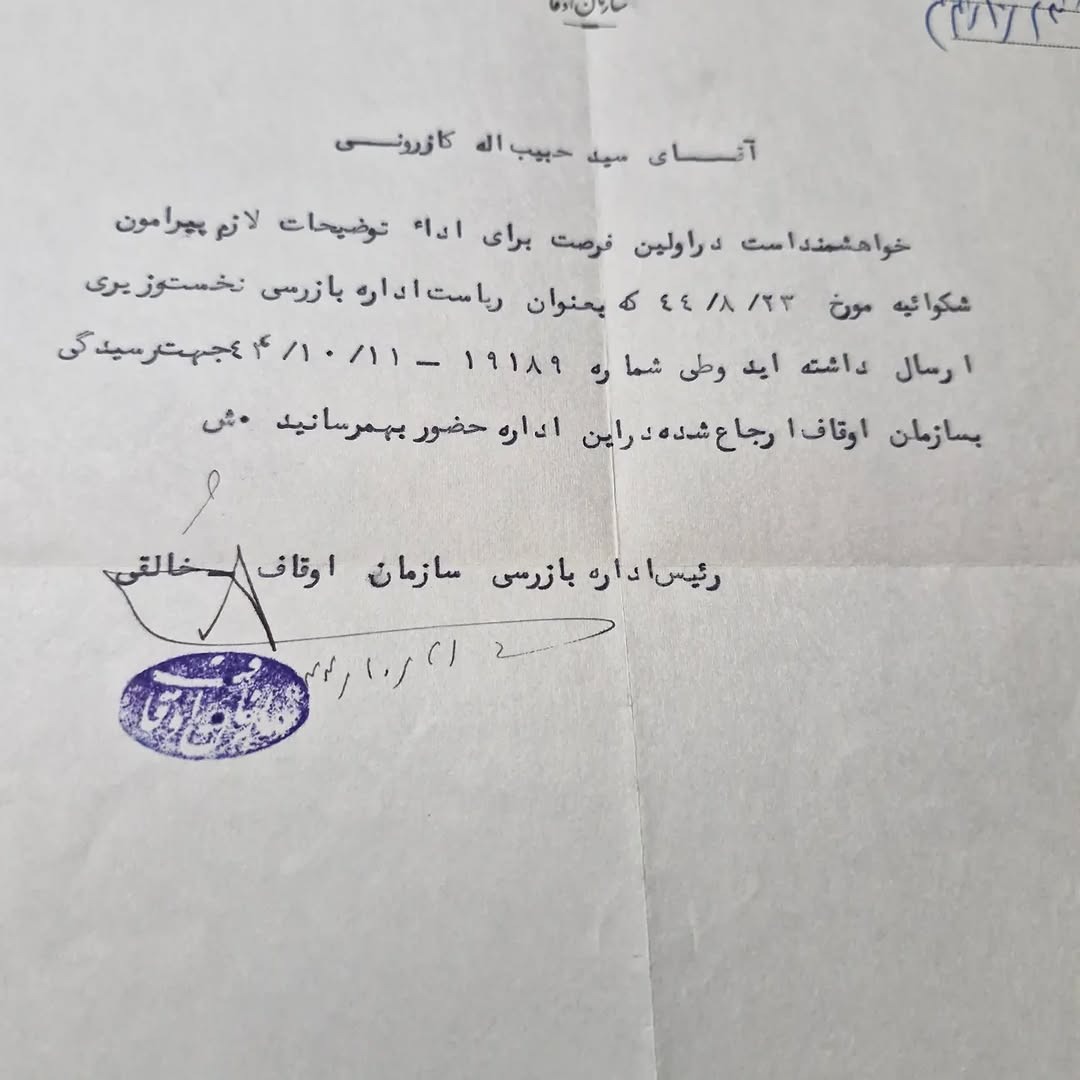 سازمان اوقاف
آقـــای سید حبیب اله کازرونــی
خواهشمنداست دراولین فرصت برای اداء توضیحات لازم پیرامون
شکوائیه مورخ ۴۴/۸/۲۳ که بعنوان ریاست اداره بازرسی نخست وزیری
ارسال داشته اید وطی شماره ۱۹۱۸۹ – ۴۴/۱۰/۱۱ جهت رسیدگی
بسازمان اوقاف ارجاع شده دراین اداره حضور بهمرسانید ۰ش
رئیس اداره بازرسی سازمان اوقاف – خالقی
سازمان اوقاف